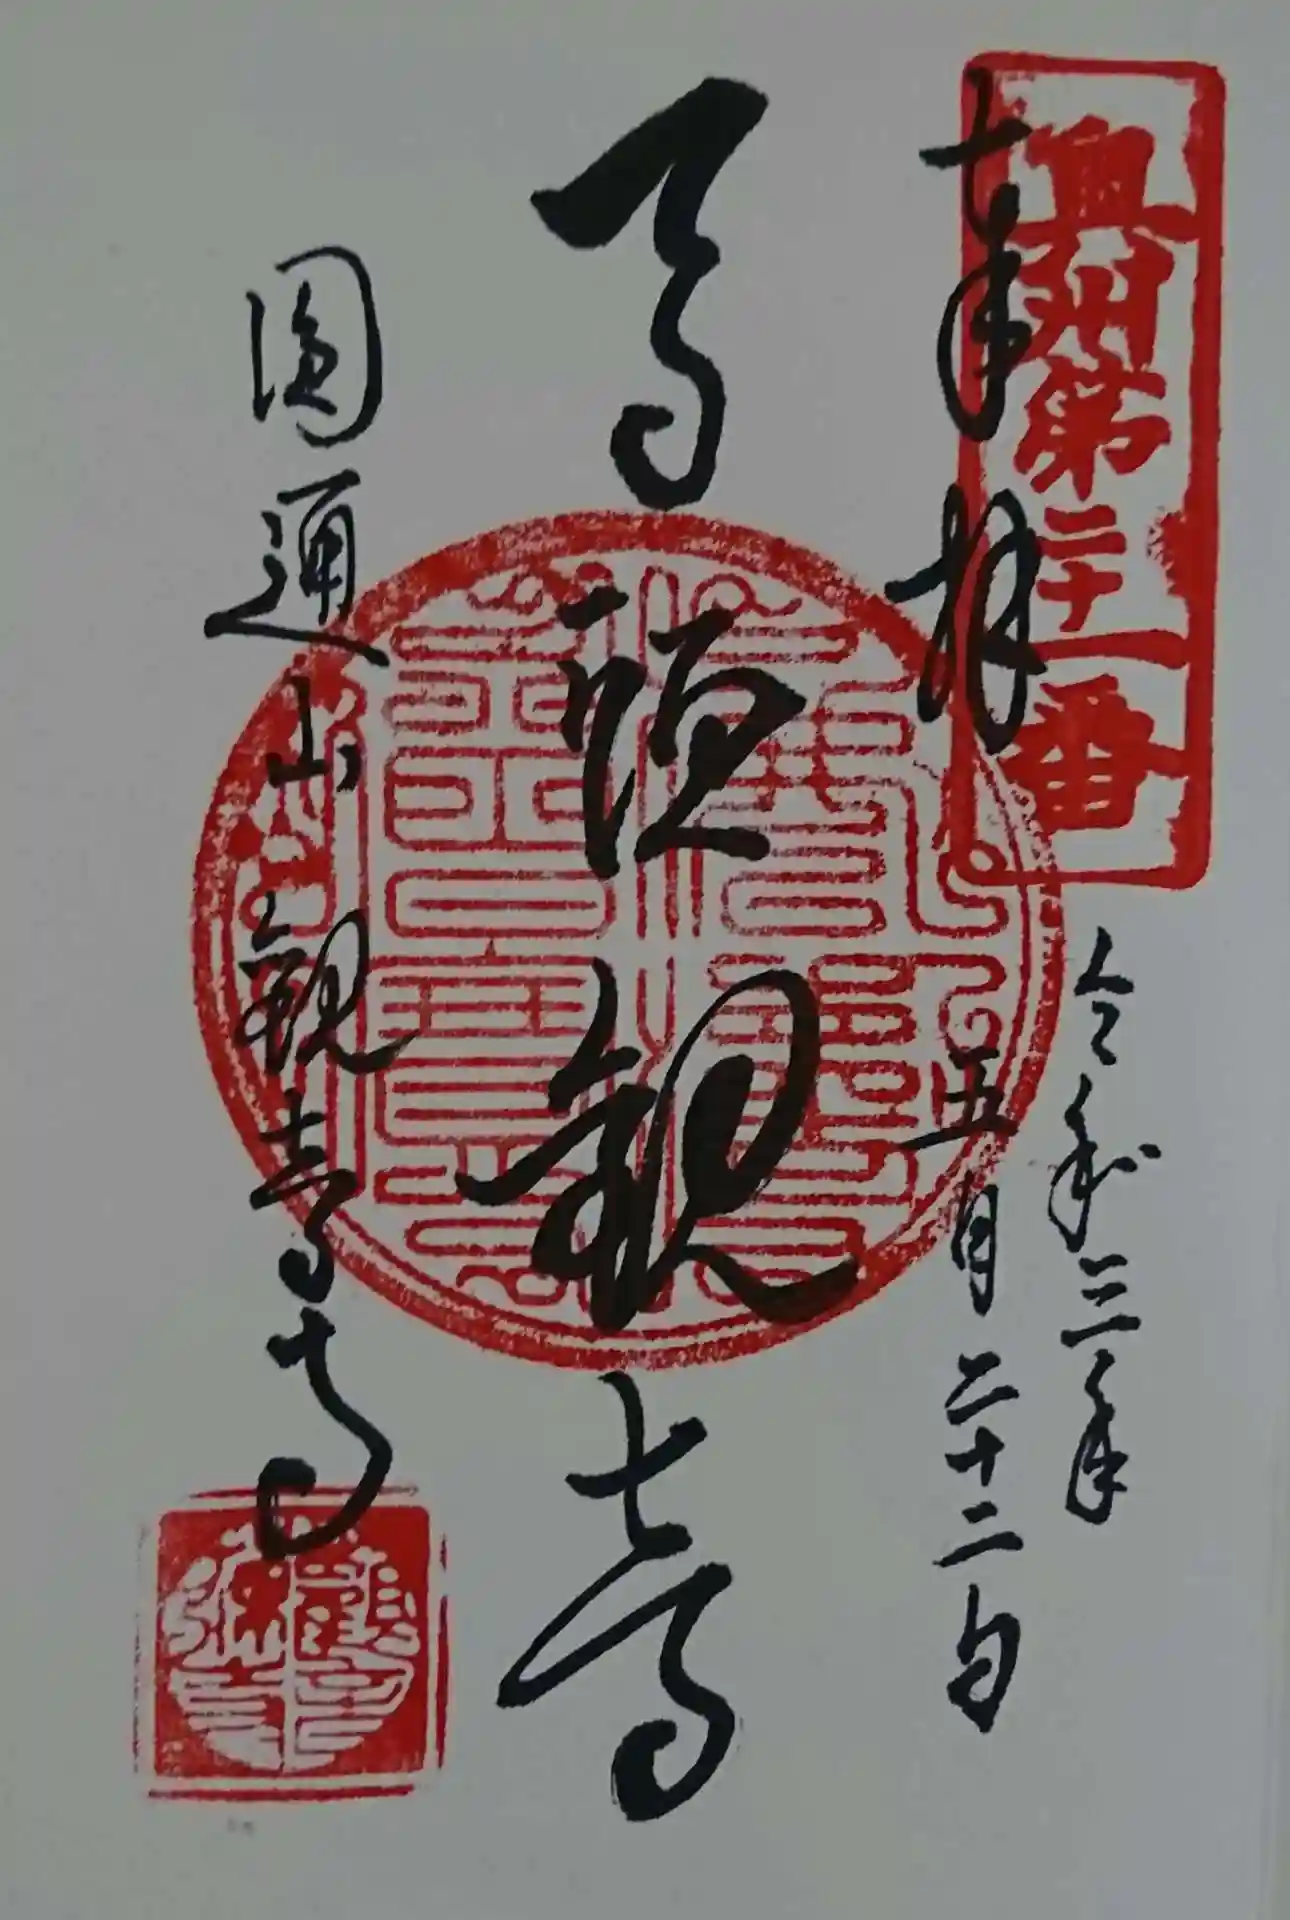 奉拝
豊州第二十一番
令和三年
五月二十二日
馬頭観音
圓通山観音寺